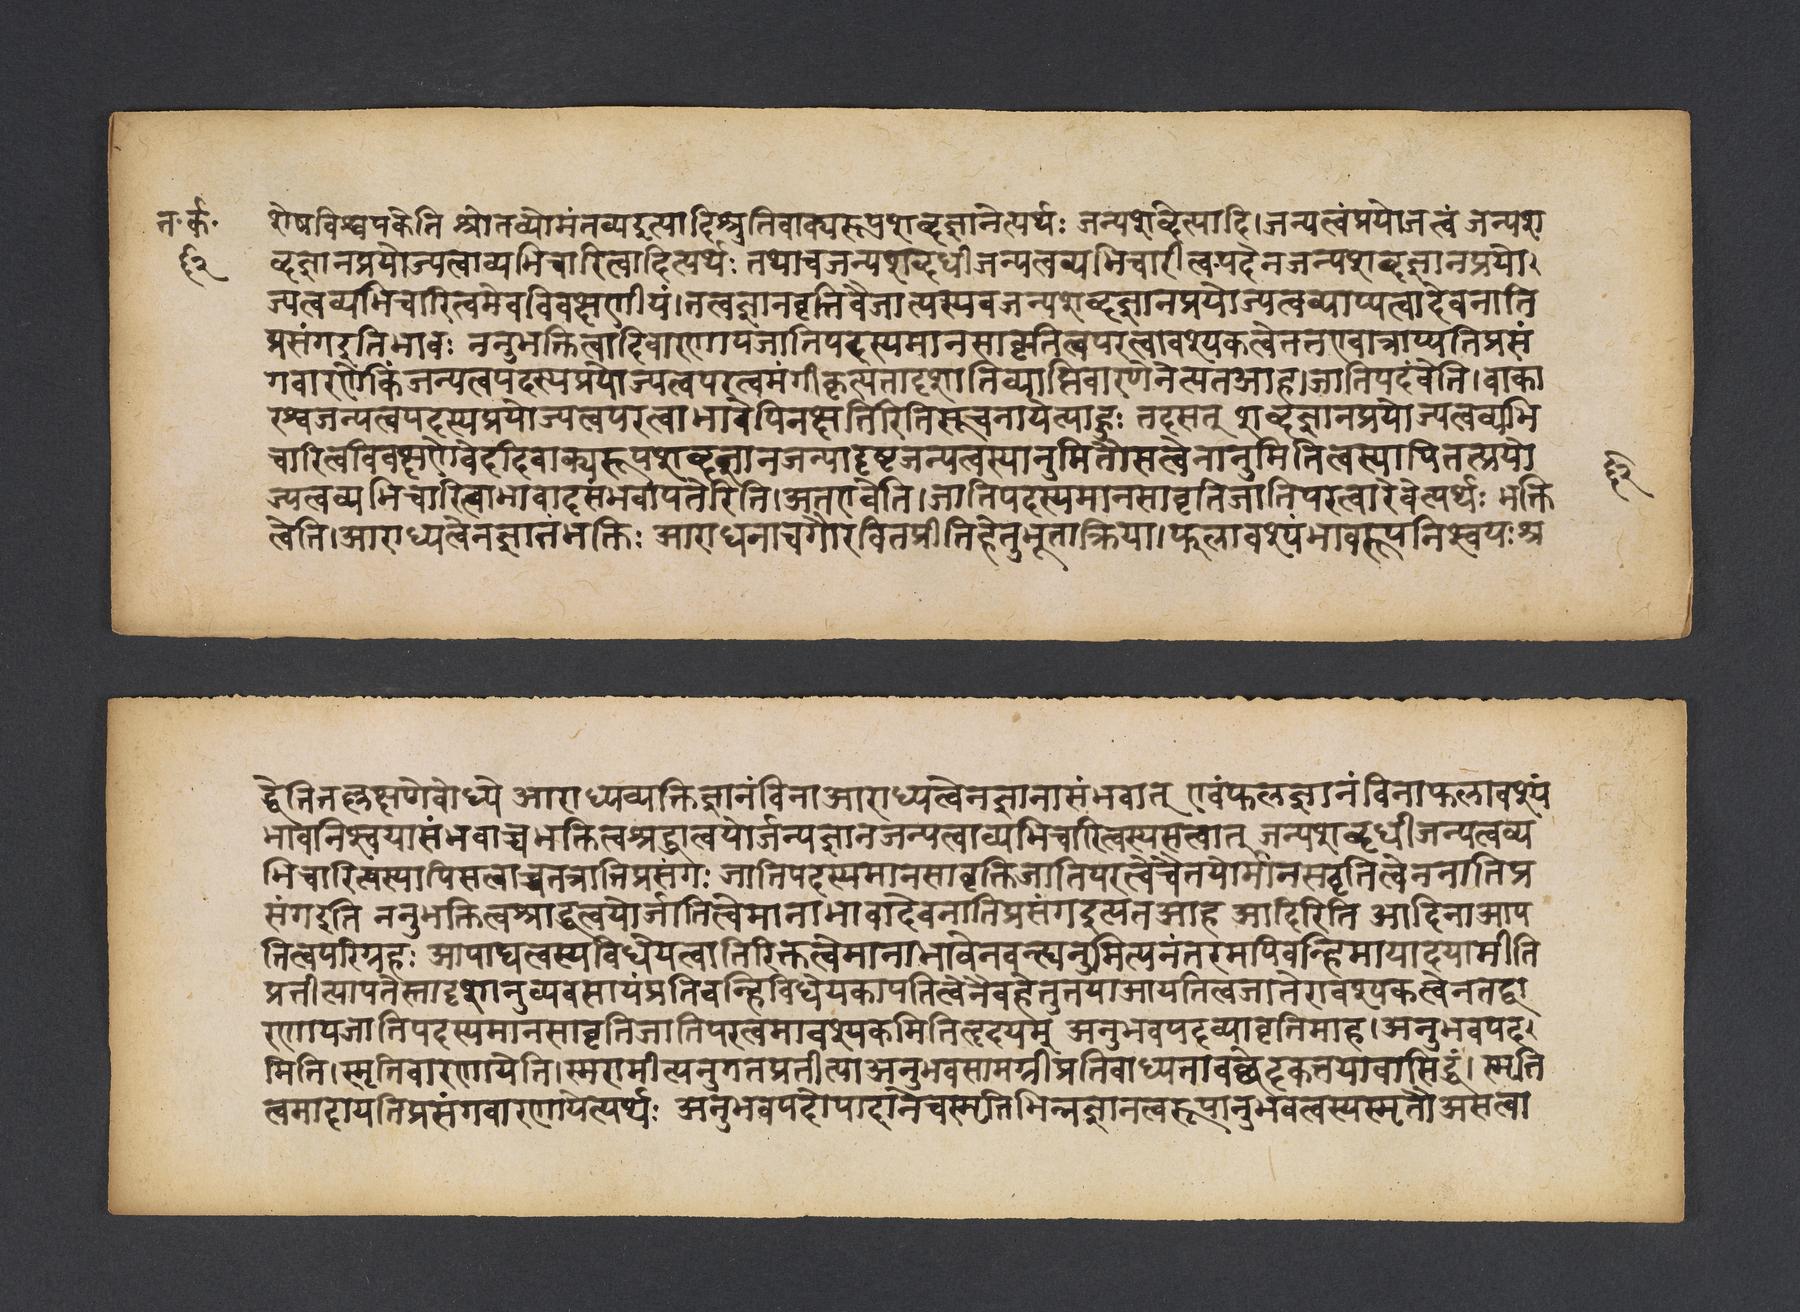 त॰ र्क॰
६२
शेषविश्वपकेति श्रोतव्योमंतव्यइत्यादिश्रुतिवाक्यरूपशब्दज्ञानेत्यर्थः जन्यशब्देत्यादि।जन्यत्वंप्रयोजत्वं जन्यश
ब्दज्ञानप्रयोज्यत्वाव्यभिचारित्वादित्यर्थः तथाचजन्यशब्दधीजन्यत्वव्यभिचारीत्वपदेनजन्यशब्दज्ञानप्रयो।
ज्यत्वव्यभिचारित्वमेवविवक्षणीयं।तत्वज्ञानवृत्तिवैजात्यस्यचजन्यशब्दज्ञानप्रयोज्यत्वव्याप्यत्वादेवनाति
प्रसंगइतिभावः ननुभक्तित्वादिवारणायजातिपदस्यमानसावृत्तितत्वपरत्वावश्यकत्वेनतएवात्राप्यतिप्रसं
गवारणेकिंजन्यत्वपदस्यप्रयोज्यत्वपरत्वमंगीकृत्यतादृशातिव्याप्तिवारणेनेत्यतआह।जातिपदंवेति।वाका
रश्वजन्यत्वपदस्यप्रयोज्यत्वपरत्वाभावेपिनक्षतिरितिसूचनायेत्याहुः तदसत् शब्दज्ञानप्रयोज्यत्वव्यभि
चारित्वविवक्षणेवेदादिवाक्यरूपशब्दज्ञानजन्यादृष्टजन्यत्वस्यानुमितौसत्वेनानुमितित्वस्यापितत्प्रयो
ज्यत्वव्यभिचारित्वाभावादसंभवापत्तेरिति।अतएवेति।जातिपदस्यमानसावृतिजातिपरत्वादेवेत्यर्थः भक्ति
६२
त्वेति।आराध्यत्वेनज्ञानंभक्तिः आराधनाचगौरवितप्रीतिहेतुभूताक्रिया।फलावश्यंभावरूपनिश्वयःश्र
द्वेतितल्लक्षणेबोध्ये आराध्यव्यक्तिज्ञानंविनाआराध्यत्वेनज्ञानासंभवात् एवंफलज्ञानंविनाफलावश्यं
भावनिश्वयासंभवाच्चभक्तित्वश्रद्धात्वयोर्जन्यज्ञानजन्यत्वाव्यभिचारित्वस्यसत्वात् जन्यशब्दधीजन्यत्वव्य
भिचारित्वस्यापिसत्वाच्चतत्रातिप्रसंगः जातिपदस्यमानसावृत्तिजातिपरत्वेचैतयोर्मानसवृतित्वेननातिप्र
संगइति ननुभक्तित्वश्राद्धत्वयोर्जातित्वेमानाभावादेवनातिप्रसंगइत्यतआह आदिरिति आदिनाआप
तित्वपरिग्रहः आपाद्यत्वस्यविधेयत्वातिरिक्तत्वेमानाभावेनवन्ह्यनुमित्यनंतरमपिवन्हिमापादयामीति
प्रतीत्यापतेस्तादृशानुव्यवसायंप्रतिवन्हिविधेयकापतित्वेनैवहेतुतयाआपतित्वजातेरावश्यकत्वेनतद्वा
रणायजातिपदस्यमानसावृतिजातिपरत्वमावश्यकमितिहृदयम् अनुभवपदव्यावृतिमाह।अनुभवपद।
मिति।स्मृतिवारणायेति।स्मरामीत्यनुगतप्रतीत्याअनुभवसामग्नींप्रतिबाध्यतावच्छेदकतयावासिद्धं। स्मृति
त्वमादायतिप्रसंगवारणायेत्यर्थः अनुभवपदोपादानेचस्मृतिभिन्नज्ञानत्वरूपानुभवत्वस्यस्मृतौअसत्वा